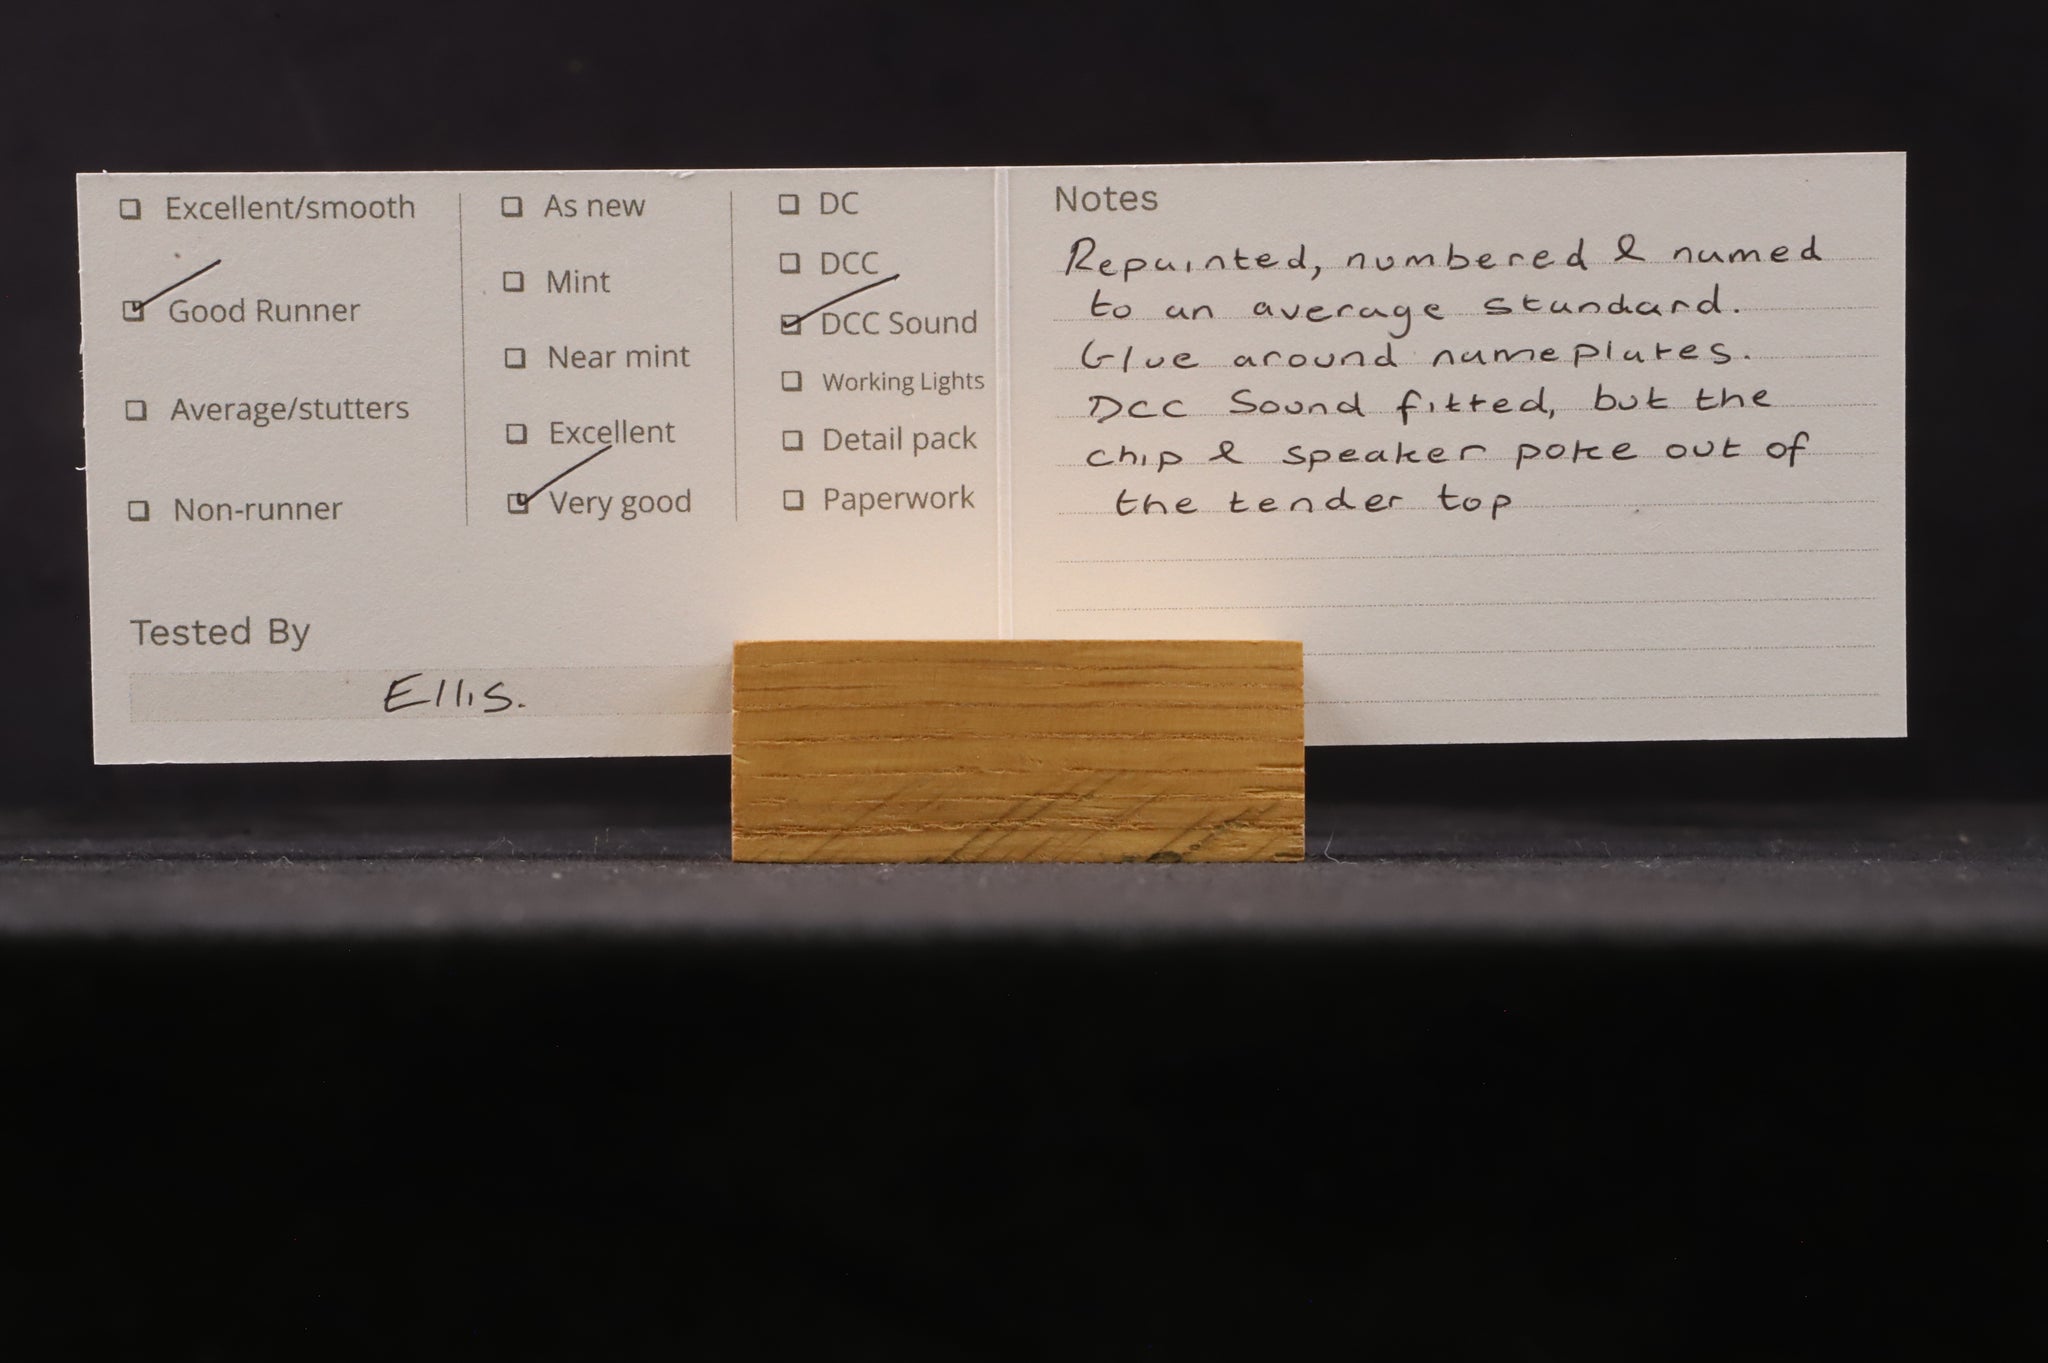 Excellent/smooth
Good Runner
Average/stutters
Non-runner
As new
Mint
Near mint
Excellent
Very good
DC
DCC
DCC Sound
Working Lights
Detail pack
Paperwork
Tested By
Ellis.
Notes
Repainted, numbered & named
to an average standard.
Glue around nameplates.
DCC Sound fitted, but the
chip & speaker poke out of
the tender top